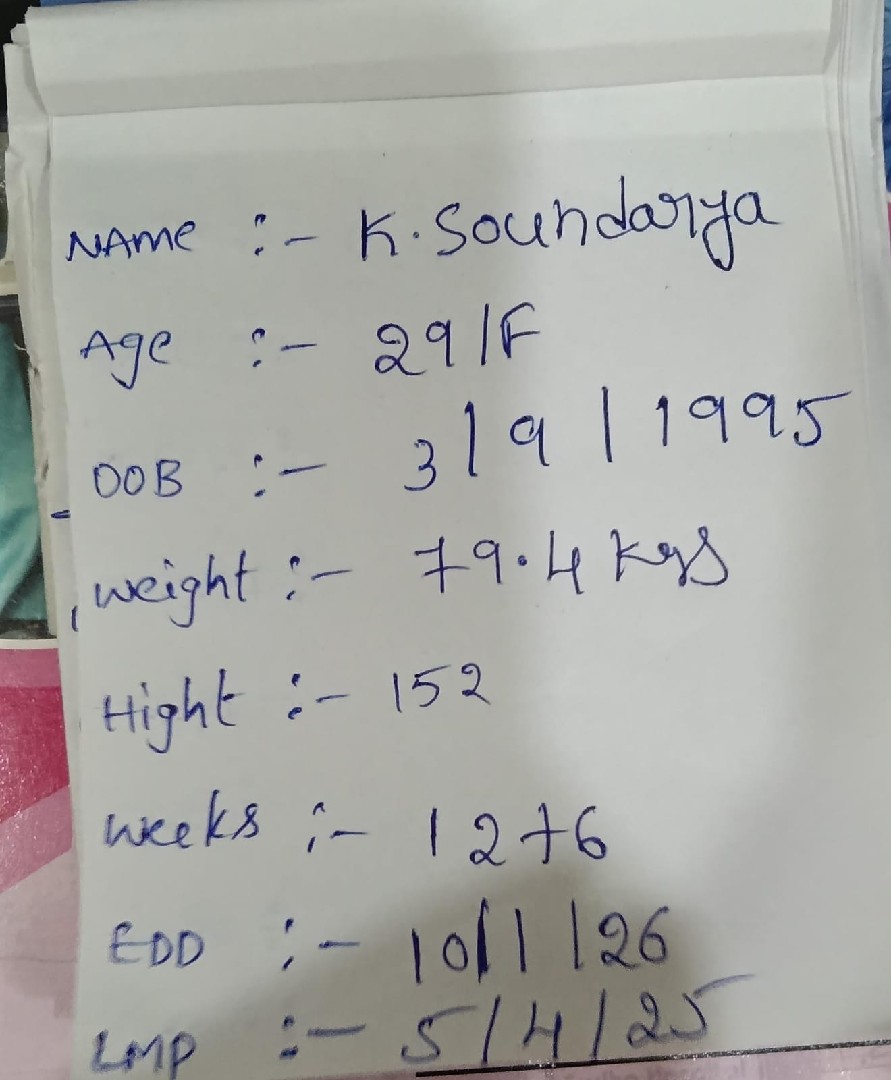 NAME :- K. Soundarya
Age :- 29/F
DOB :- 3/9/1995
weight :- 79.4 kgs
Hight :- 152
weeks :- 12+6
EDD :- 10/1/26
LMP :- 5/4/25